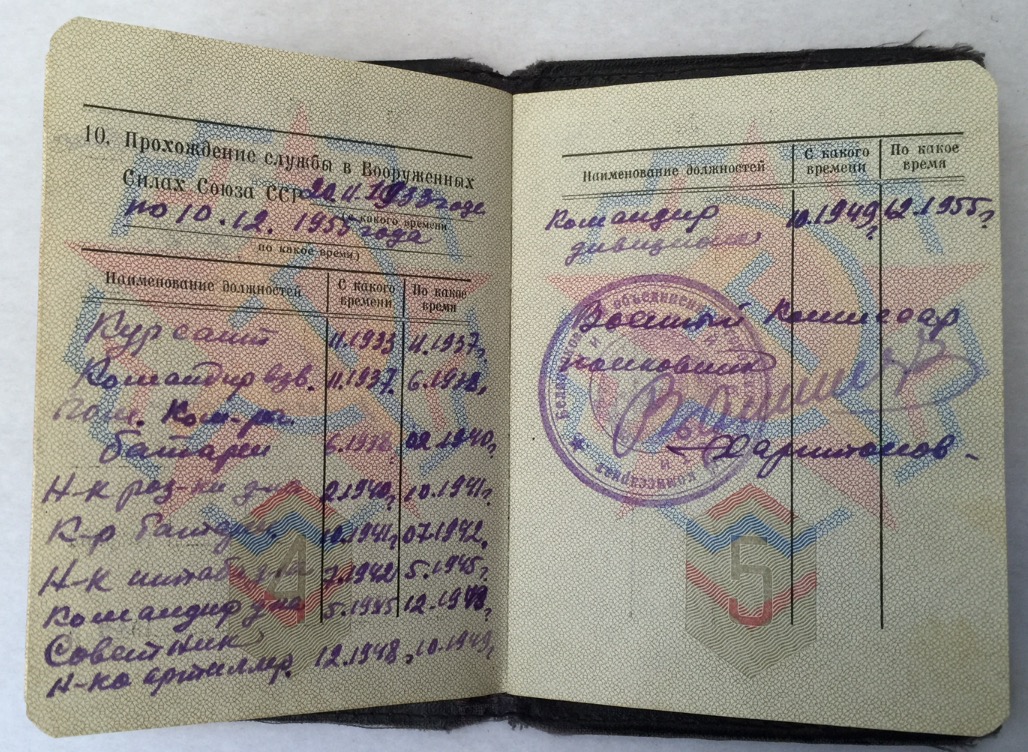 10. Прохождение службы в Вооруженных
Силах Союза ССР 20.11.1933 года
(с какого времени
по 10.12.1955 года
по какое время)
Наименование должностей С какого времени По какое время
Курсант 11.1933 11.1937г.
Командир взв. 11.1937. 6.1938г.
Пом. Ком-ра
батареи 6.1938 02.1940г.
Н-к раз-ки д-на 2.1940г. 10.1941г.
К-р батареи 10.1941г. 07.1942.
Н-к штаба д-на 7.1942 5.1945г.
Командир д-на 5.1945 12.1948г.
Советник
Н-ка артиллер. 12.1948г. 10.1949г.
4
Наименование должностей С какого времени По какое время
Командир 10.1949г. 12.1955г.
дивизиона
Военный Комиссар
полковник
Харитонов.
5